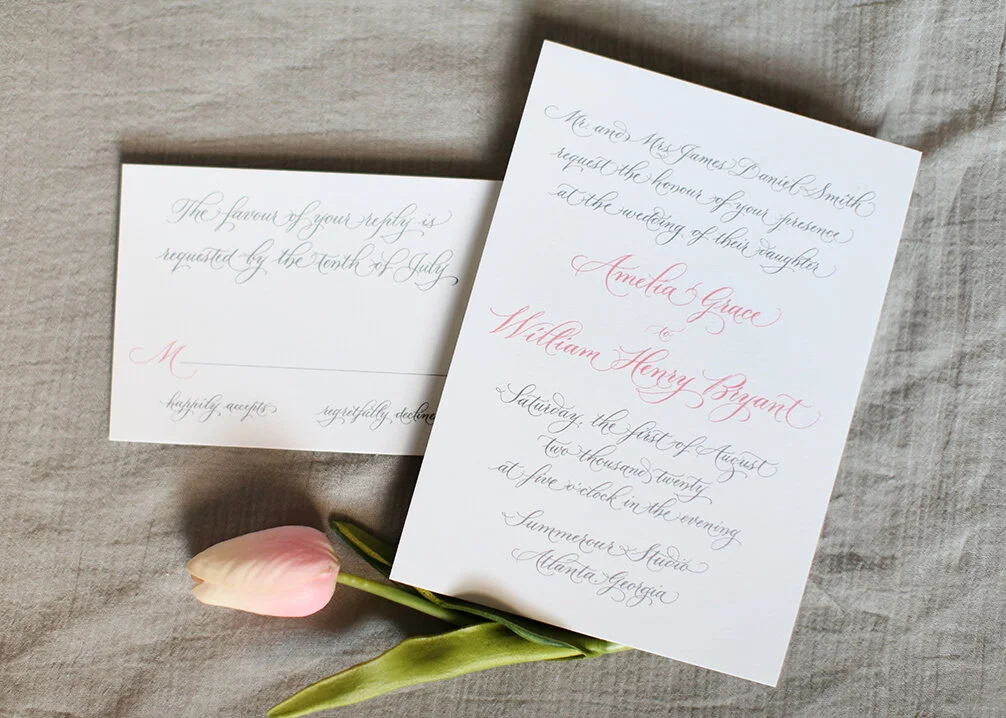 The favour of your reply is
requested by the tenth of July
M
happily accepts
regretfully decline
Mr. and Mrs. James Daniel Smith
request the honour of your presence
at the wedding of their daughter
Amelia Grace
to
William Henry Bryant
Saturday, the first of August
two thousand twenty
at five o'clock in the evening
Summerour Studio
Atlanta Georgia